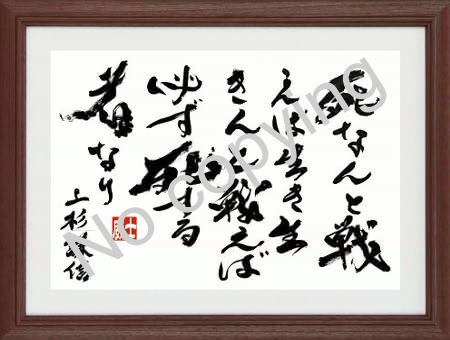 死なんと戦
えば生き生
きんと戦えば
必ず死する
者なり
上杉謙信
No copying